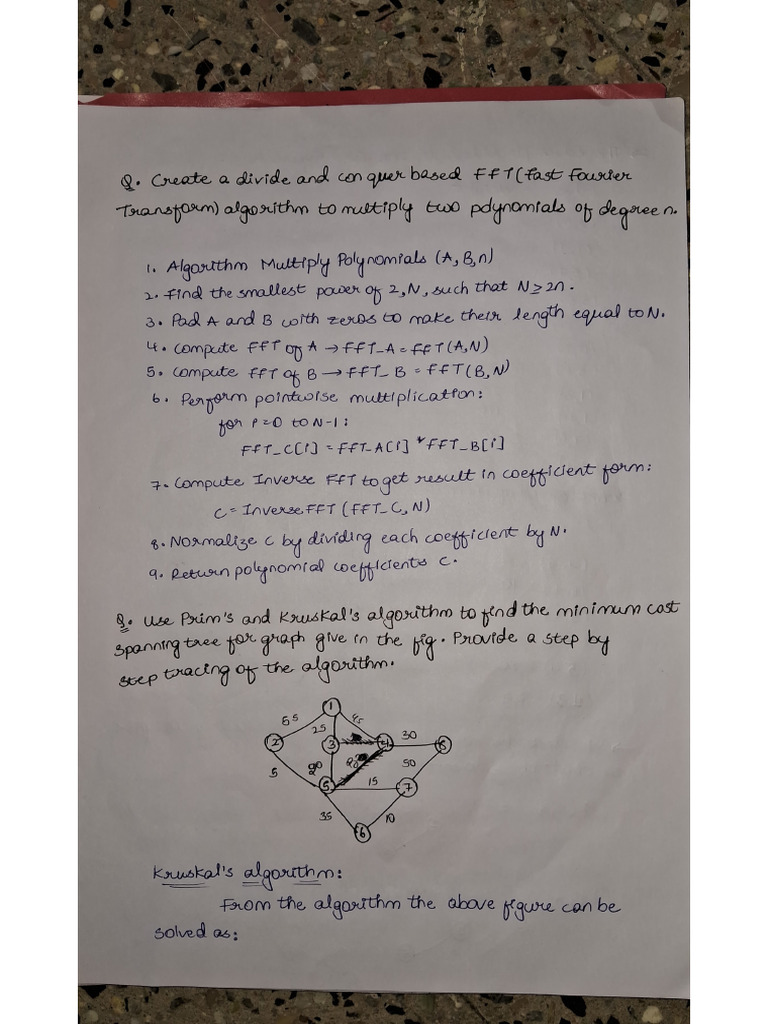 Q. Create a divide and conquer based FFT (Fast Fourier
Transform) algorithm to multiply two polynomials of degree n.
1. Algorithm Multiply Polynomials (A, B, n)
2. Find the smallest power of 2, N, such that N ≥ 2n.
3. Pad A and B with zeros to make their length equal to N.
4. Compute FFT of A → FFT_A = FFT (A, N)
5. Compute FFT of B → FFT_B = FFT (B, N)
6. Perform pointwise multiplication:
for i = 0 to N-1:
FFT_C[i] = FFT_A[i] * FFT_B[i]
7. Compute Inverse FFT to get result in coefficient form:
C = Inverse FFT (FFT_C, N)
8. Normalize C by dividing each coefficient by N.
9. Return polynomial coefficients C.
Q. Use Prim's and Kruskal's algorithm to find the minimum cost
spanning tree for graph give in the fig. Provide a step by
step tracing of the algorithm.
1
55 25 45
2 3 4 30 8
5 20 50
5 15 7
35 10
6
Kruskal's algorithm:
From the algorithm the above figure can be
solved as: